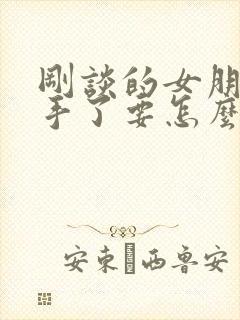 剛談的女朋
手了要怎麼
安東 西魯安